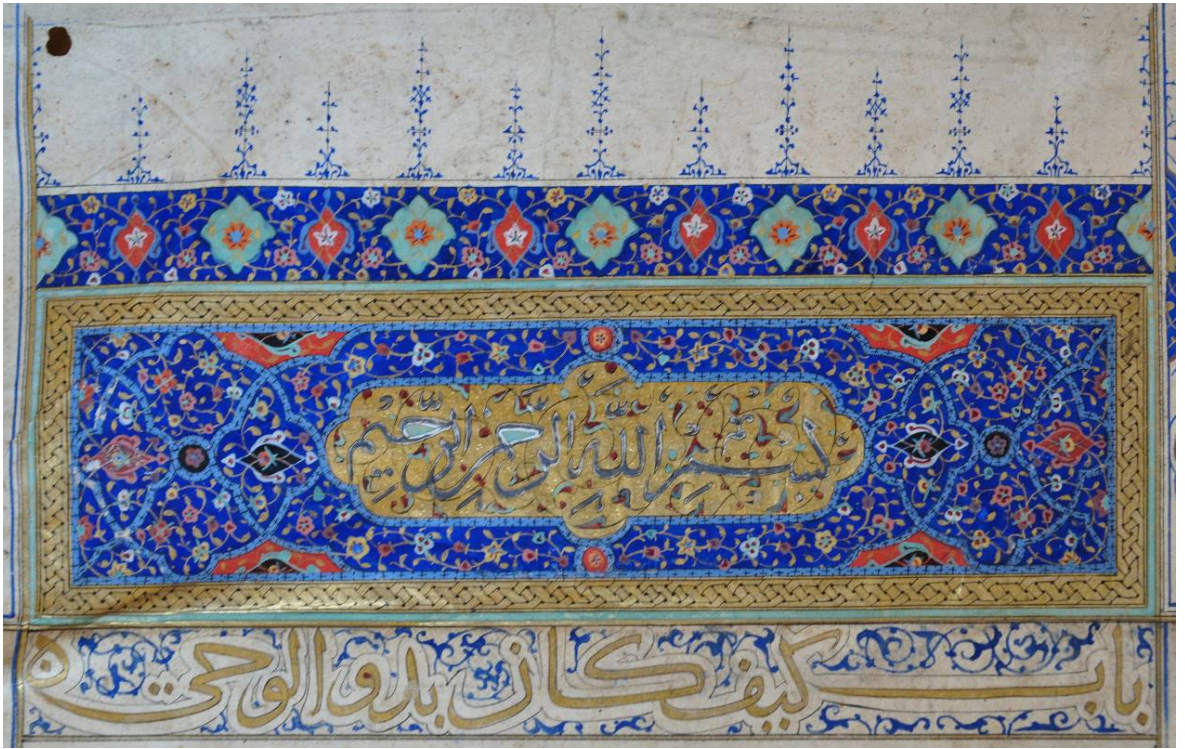 بسم الله الرحمن الرحيم
باب كيف كان بدو الوحي